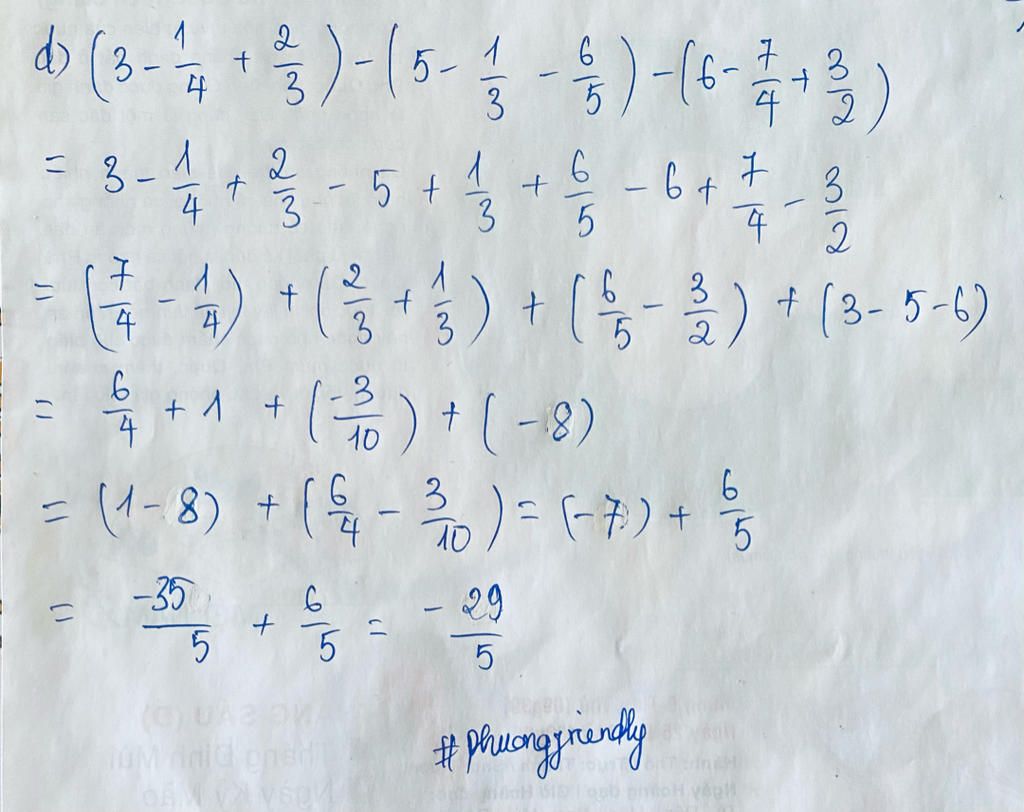 d) (3 - 1/4 + 2/3) - (5 - 1/3 - 6/5) - (6 - 7/4 + 3/2)
= 3 - 1/4 + 2/3 - 5 + 1/3 + 6/5 - 6 + 7/4 - 3/2
= (7/4 - 1/4) + (2/3 + 1/3) + (6/5 - 3/2) + (3 - 5 - 6)
= 6/4 + 1 + (-3/10) + (-8)
= (1 - 8) + (6/4 - 3/10) = (-7) + 6/5
= -35/5 + 6/5 = -29/5
#phuongfriendly